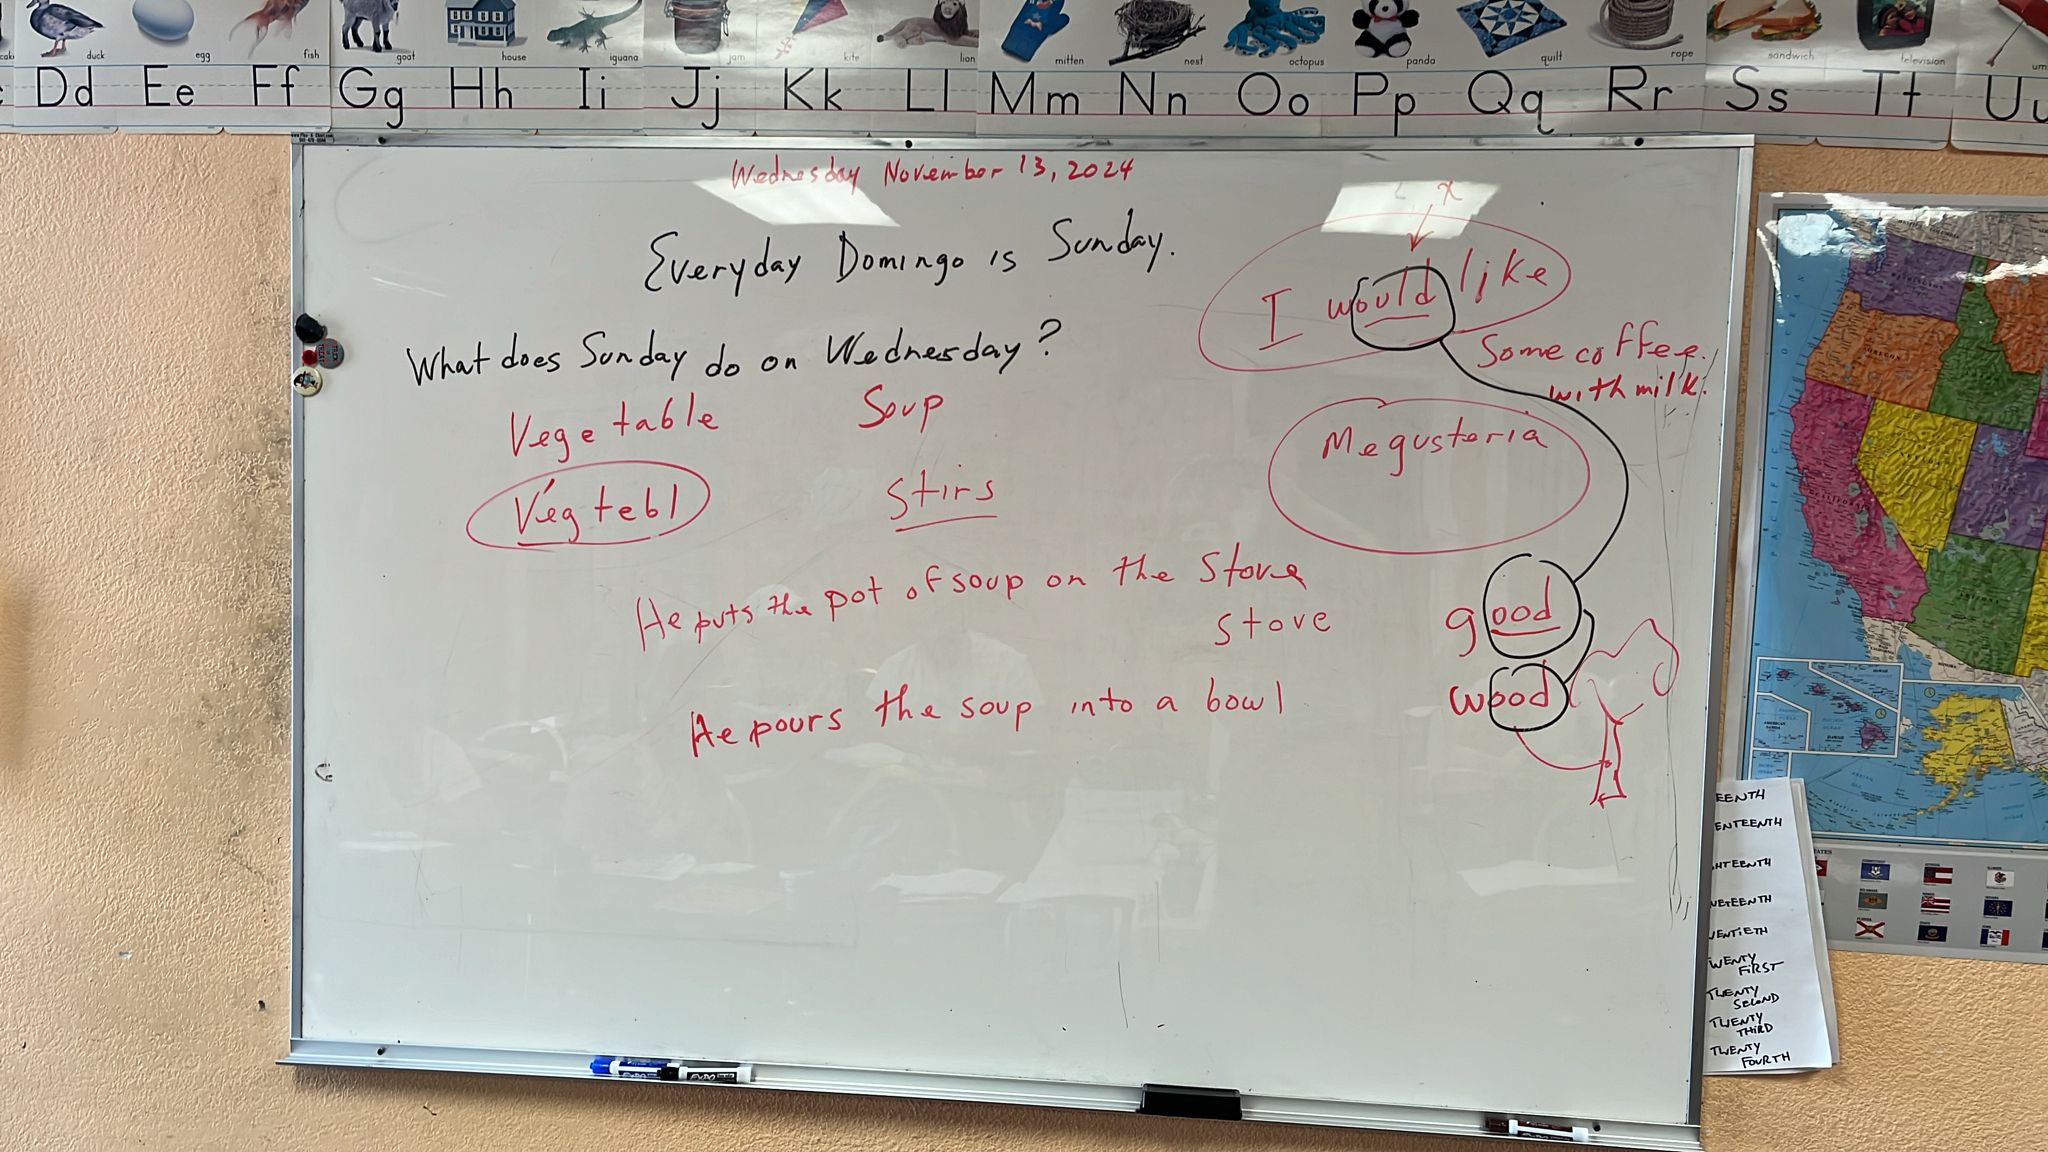 duck
egg
fish
goat
house
iguana
jam
kite
lion
mitten
nest
octopus
panda
quilt
rope
sandwich
television
Dd Ee Ff Gg Hh Ii Jj Kk Ll Mm Nn Oo Pp Qq Rr Ss Tt Uu
Wednesday November 13, 2024
Everyday Domingo is Sunday.
What does Sunday do on Wednesday?
Vegetable
Soup
Végtebl
Stirs
He puts the pot of soup on the Stove
stove
He pours the soup into a bowl
x
I would like
Some coffee.
with milk.
Megustaria
good
wood
OREGON
PACIFIC
EENTH
ENTEENTH
HTEENTH
NETEENTH
WENTIETH
TWENTY
FIRST
TWENTY
SECOND
TWENTY
THIRD
TWENTY
FOURTH